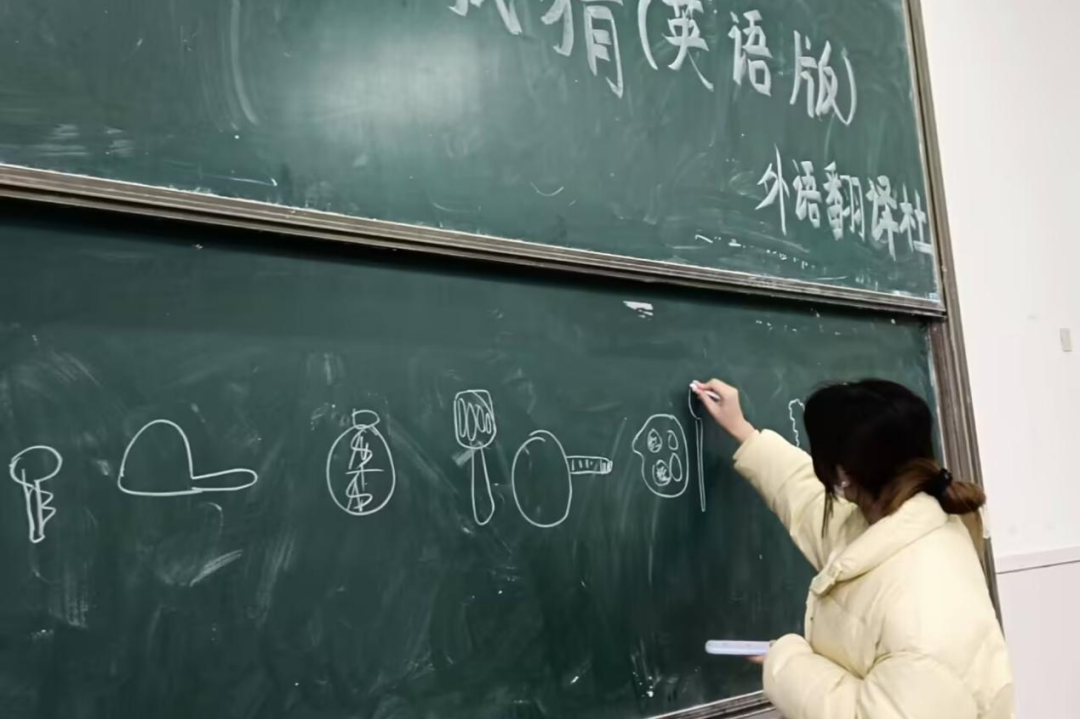 我猜(英语版)
外语翻译社
$
$